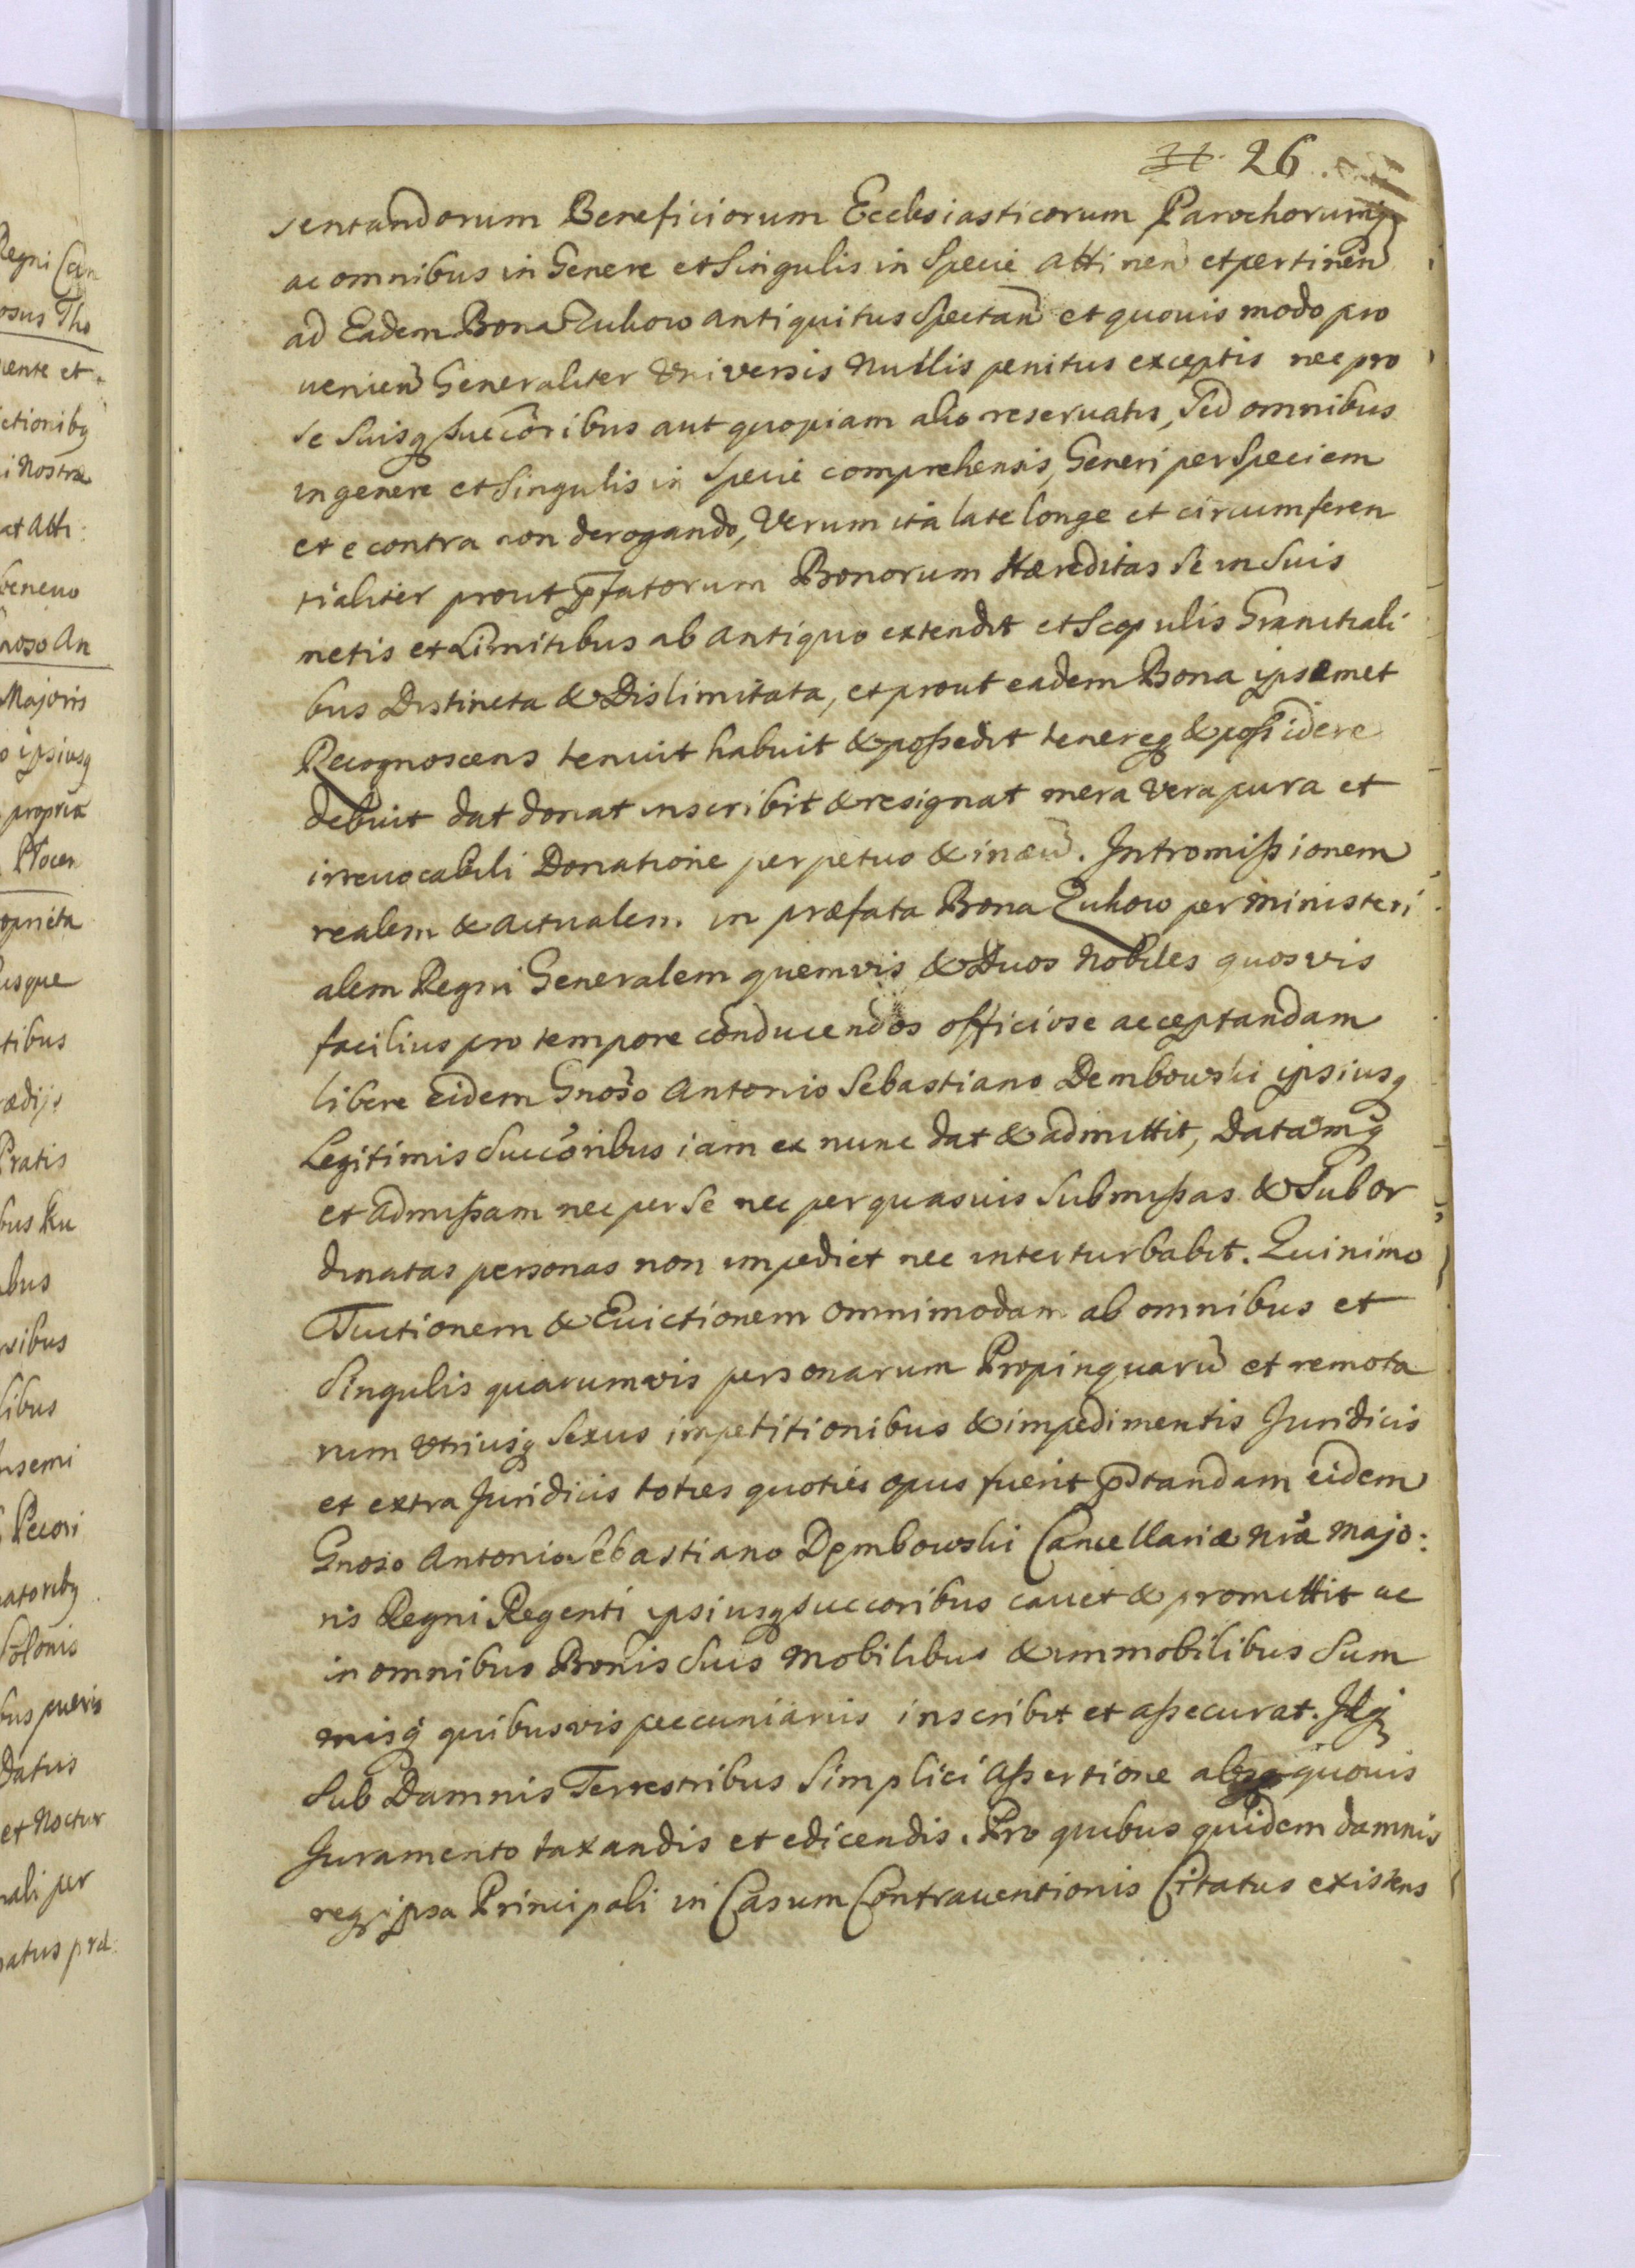 26
sentandorum Beneficiorum Ecclesiasticorum Parochorumq
ac omnibus in Genere et Singulis in Specie attinen et pertinen
ad Eadem Bona Zukow antiquitus Spectan et quouis modo pro
uenien Generaliter Vniversis Nullis penitus exceptis nec pro
se Suisq Succoribus aut quopiam alio reseruatis, Sed omnibus
in genere et Singulis in Specie comprehensis, Generi per Speciem
et e contra non derogando, Verum ita late longe et circumferen
tialiter prout pfatorum Bonorum Hæreditas Se in Suis
metis et Limitibus ab antiquo extendit et Scopulis Granicitali
bus Distincta & Dislimitata, et prout eadem Bona ipsemet
Recognoscens tenuit habuit & possedit tenereq & possidere
debuit dat donat inscribit & resignat mera Vera pura et
irreuocabili Donatione perpetuo & in æu. Intromissionem
realem & actualem in præfata Bona Zukow per ministeri
alem Regni Generalem quemvis & Duos Nobiles quosvis
facilius pro tempore conducendos officiose acceptandam
libere Eidem Gnoso Antonio Sebastiano Dembowski ipsiusq
Legitimis Succoribus iam ex nunc dat & admittit, Datamq
et admissam nec per Se nec per quasuis Submissas & Subor
dinatas personas non impediet nec interturbabit. Quinimo
Tuitionem & Euictionem omnimodam ab omnibus et
Singulis quarumvis personarum Propinquaru et remota
rum Vtriusq Sexus impetitionibus & impedimentis Juridicis
et extra Juridicis toties quoties opus fuerit pstandam eidem
Gnoso Antonio Sebastiano Dembowski Cancellariæ Nræ Majo:
ris Regni Regenti ipsiusq Succoribus cauet & promittit ac
in omnibus Bonis Suis Mobilibus & immobilibus Sum
misq quibusvis pecuniariis inscribit et assecurat. Idq
Sub Damnis Terrestribus Simplici assertione absq quouis
Juramento taxandis et edicendis. Pro quibus quidem damnis
req ipsa Principali in Casum Contrauentionis Citatus existens
Regni Can
osus Tho
ente et
ctionibq
i Nostræ
at Atti:
beneuo
noso An
Majoris
o ipsiusq
propria
oprieta
usque
tibus
rædijs
Pratis
bus Ku
bus
sibus
libus
Pecori
atoribq
Colonis
bus pueris
Datus
et Noctur
nali per